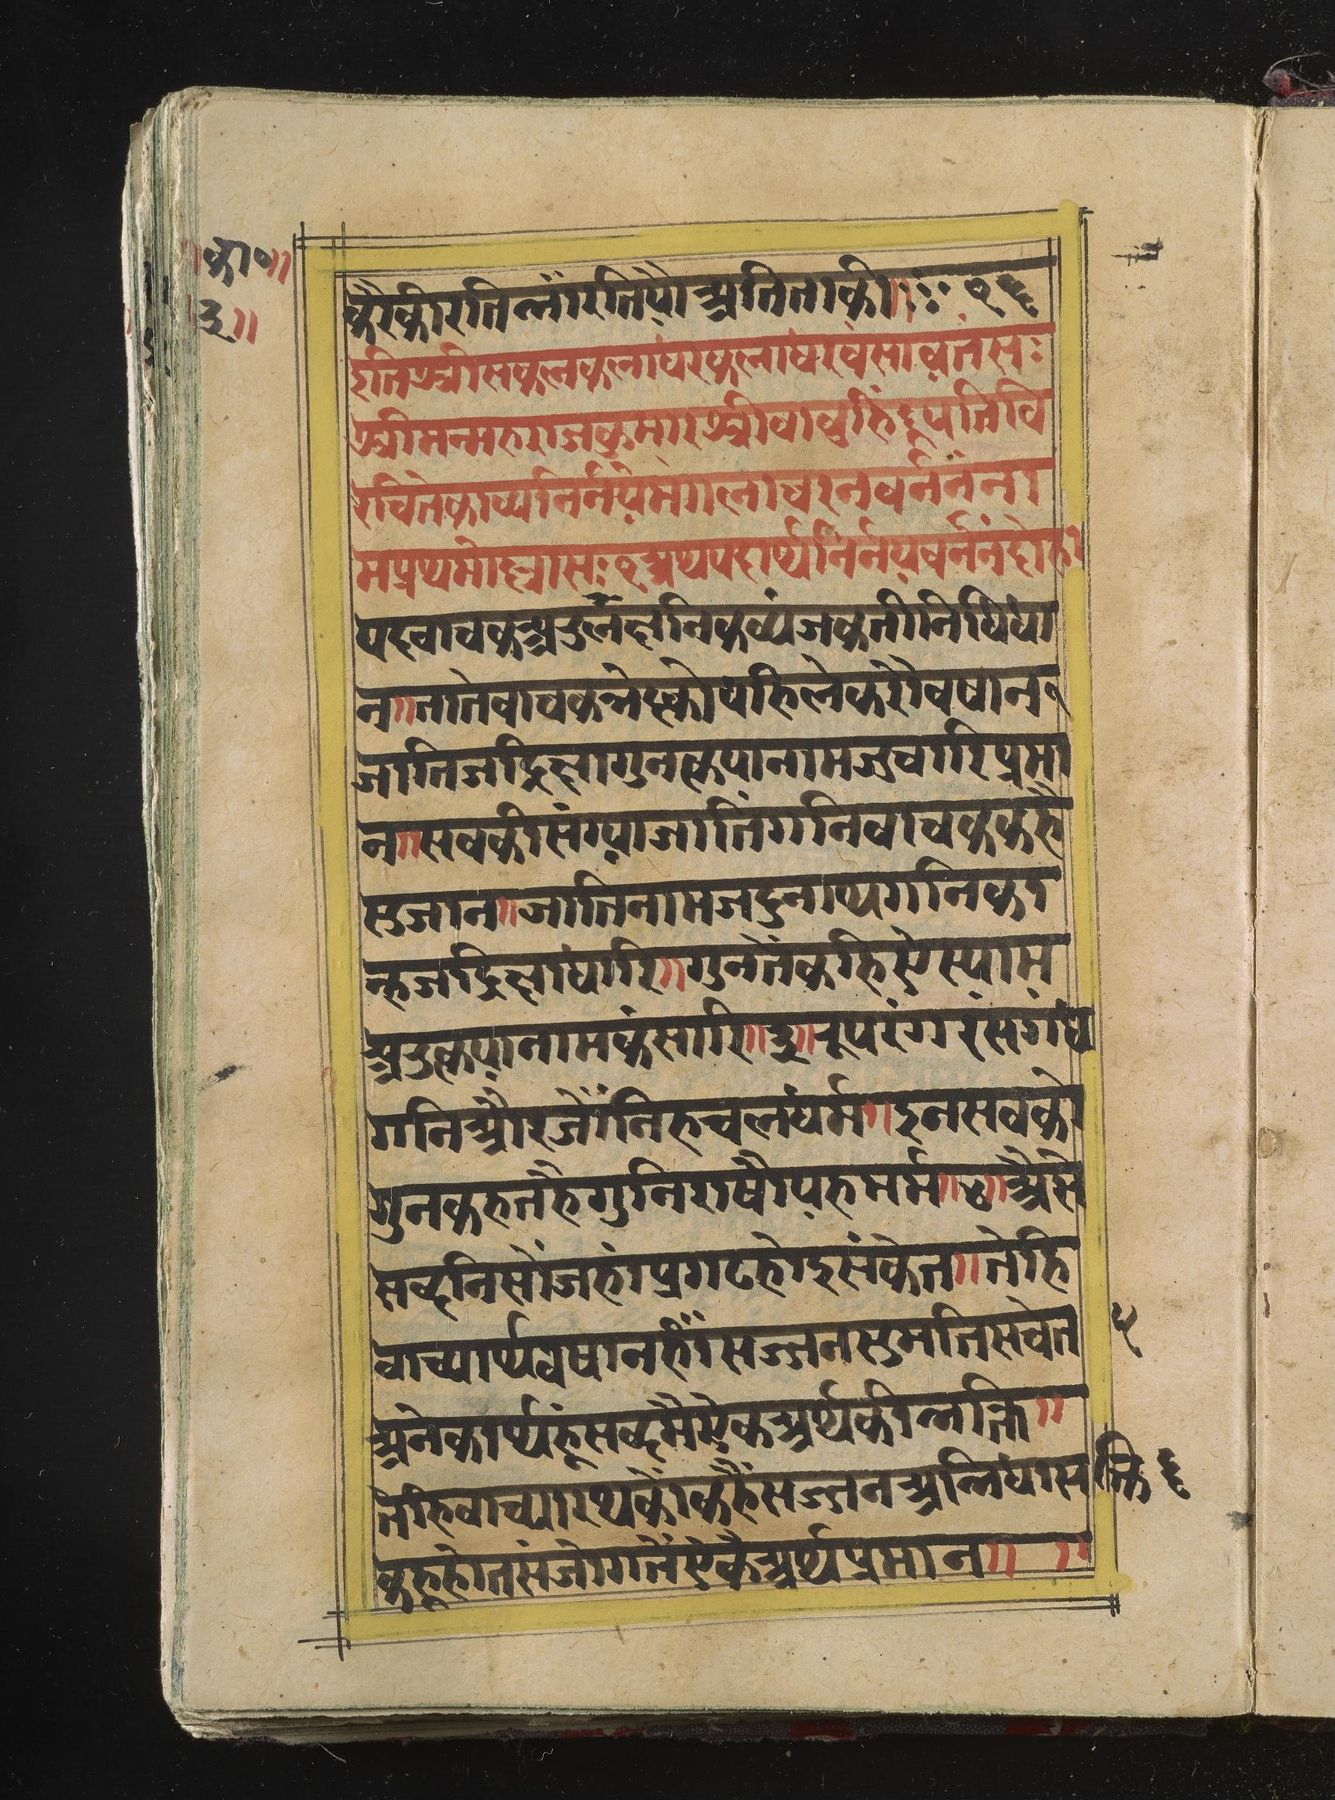 ॥का०॥
३॥
कैरकीरतिलाँरतिपौअतिताकी॥ः १६
इतिश्रीसकलकलाधरकलाधरवंसावतंसः
श्रीमन्महाराजकुमारश्रीवाबूहिंदूपतिवि
रचितेकाव्यनिर्नयेमंगलाचरनवर्ननंना
मप्रथमोल्लासः१अथपदार्थनिर्नयवर्ननंदोहा
पदवाचकअरुलछनिकव्यंजकतीनिविधा
न॥तातेवाचकभेदकोपहिलेकरौवषान१
जातिजदिछागुनकृयानामजुचारिप्रमा
न॥सवकीसंग्याजातिगनिवाचककहै
सुजान॥जातिनामजदुनाथगनिका
न्हजदिछाधारि॥गुनतेंकहिऐस्याम
अरुकृयानामकंसारि॥३॥रूपरंगरसगंध
गनिऔरजोंनिहचलधर्म॥इनसवको
गुनकहतहैगुनिराषौयहमर्म॥४॥अैसे
सव्दनिसोंजहांप्रगटहोइसंकेत॥तेहि
वाच्यार्थवषानहींसज्जनसुमतिसचेत ५
अनेकार्थहूंसव्दमैंऐकअर्थकीभक्ति॥
तेहिवाच्यारथकोंकहैंसज्जनअभिधासक्ति ६
कहूहोतसंजोगतेंऐकैअर्थप्रमान॥ ॥